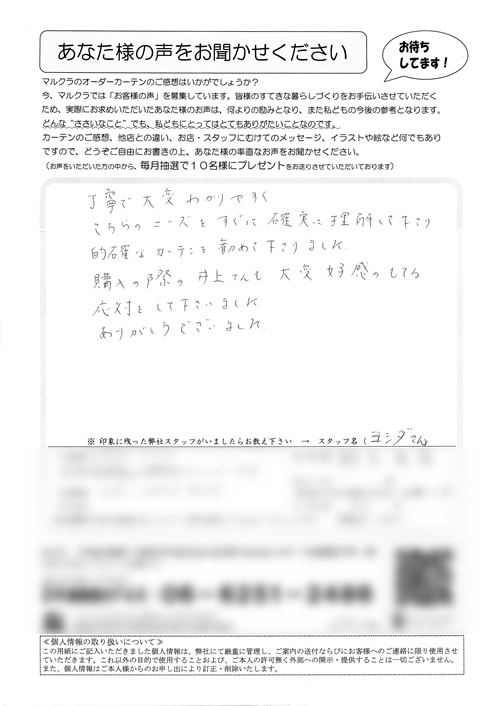 あなた様の声をお聞かせください
お待ち
してます！
マルクラのオーダーカーテンのご感想はいかがでしょうか？
今、マルクラでは「お客様の声」を募集しています。皆様のすてきな暮らしづくりをお手伝いさせていただく
ため、実際にお求めいただいたあなた様のお声は、何よりの励みとなり、また私どもの今後の参考となります。
どんな“ささいなこと”でも、私どもにとってはとてもありがたいことなのです。
カーテンのご感想、他店との違い、お店・スタッフにむけてのメッセージ、イラストや絵など何でもあり
ですので、どうぞご自由にお書きの上、あなた様の率直なお声をお聞かせください。
（お声をいただいた方の中から、毎月抽選で１０名様にプレゼントをお送りさせていただいております）
丁寧で大変わかりやすく
こちらのニーズをすぐに確実に理解して下さり
的確なカーテンを勧めて下さりました.
購入の際の井上さんも大変好感のもてる
応対をして下さいました.
ありがとうございました.
※ 印象に残った弊社スタッフがいましたらお教え下さい → スタッフ名（ヨシダさん）
06-6251-2486
≪個人情報の取り扱いについて≫
この用紙にご記入いただきました個人情報は、弊社にて厳重に管理し、ご案内の送付ならびにお客様へのご連絡に限り使用させ
ていただきます。これ以外の目的で使用することおよび、ご本人の許可無く外部への開示・提供することは一切ございません。
また、個人情報はご本人様からのお申し出により訂正・削除いたします。